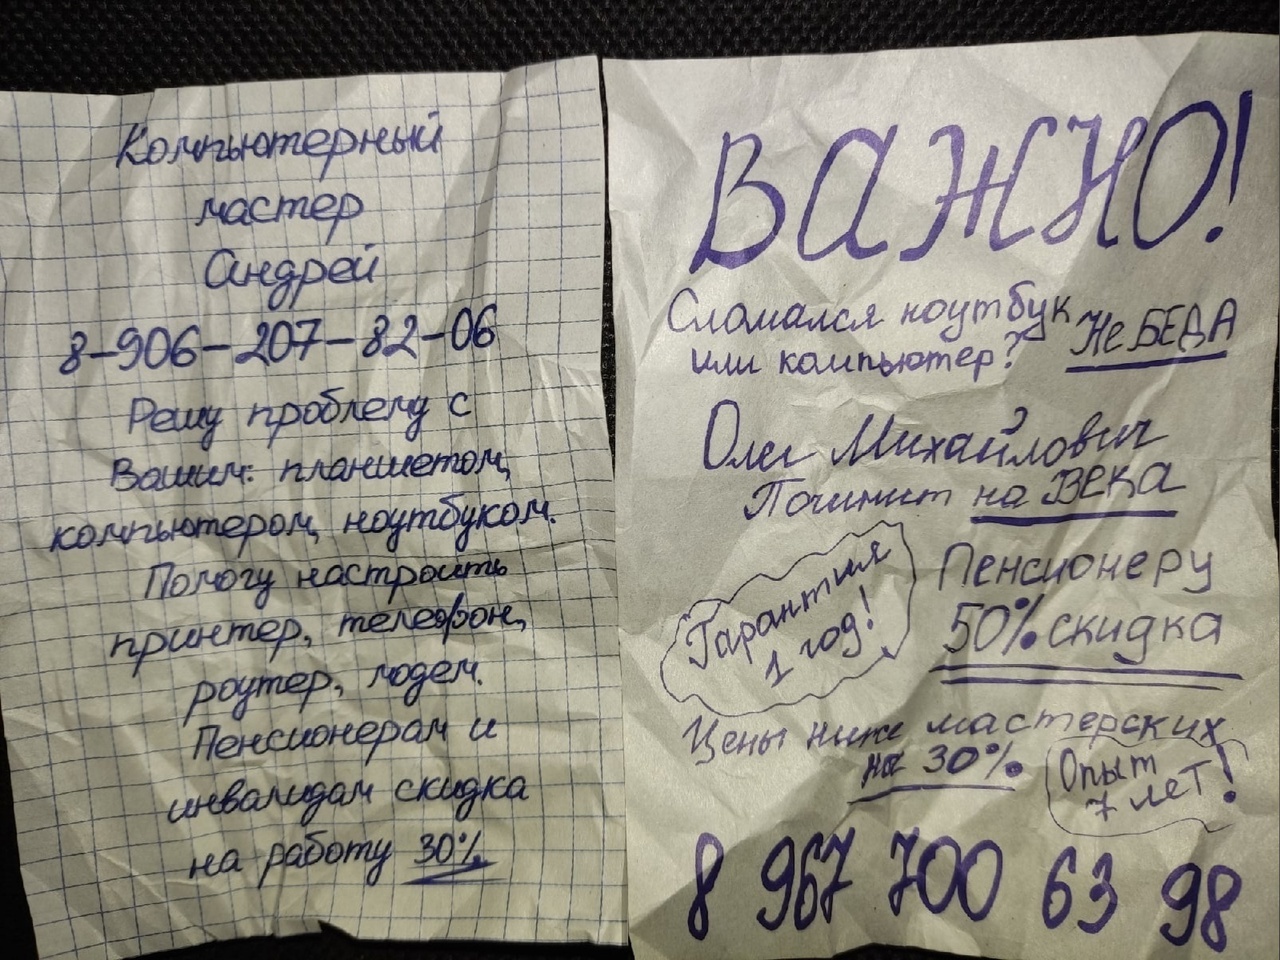 Компьютерный
мастер
Андрей
8-906-207-82-06
Решу проблему с
Вашим: планшетом,
компьютером, ноутбуком.
Помогу настроить
принтер, телефон,
роутер, модем.
Пенсионерам и
инвалидам скидка
на работу 30%
ВАЖНО!
Сломался ноутбук
или компьютер? Не БЕДА
Олег Михайлович
Починит на ВЕКА
Гарантия
1 год!
Пенсионеру
50% скидка
Цены ниже мастерских
на 30%.
Опыт
7 лет!
8 967 700 63 98